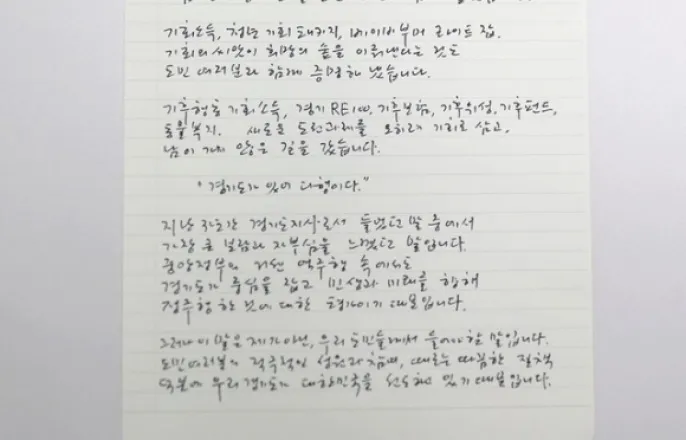 기회소득, 청년 기회 패키지, 베이비부머 라이트 잡.
기회의 씨앗이 희망의 숲을 이뤄낸다는 것도
도민 여러분과 함께 증명해 냈습니다.
기후행동 기회소득, 경기 RE100, 기후보험, 기후위성, 기후펀드,
동물복지. 새로운 도전과제를 오히려 기회로 삼고,
남이 가지 않은 길을 갔습니다.
"경기도가 있어 다행이다."
지난 3년간 경기도지사로서 들었던 말 중에서
가장 큰 보람과 자부심을 느꼈던 말입니다.
중앙정부의 거센 역주행 속에서도
경기도가 중심을 잡고 민생과 미래를 향해
정주행 한 것에 대한 평가이기 때문입니다.
그러나 이 말은 제가 아닌, 우리 도민들께서 들어야 할 말입니다.
도민 여러분의 적극적인 성원과 참여, 때로는 따끔한 질책
덕분에 우리 경기도가 대한민국을 선도하고 있기 때문입니다.